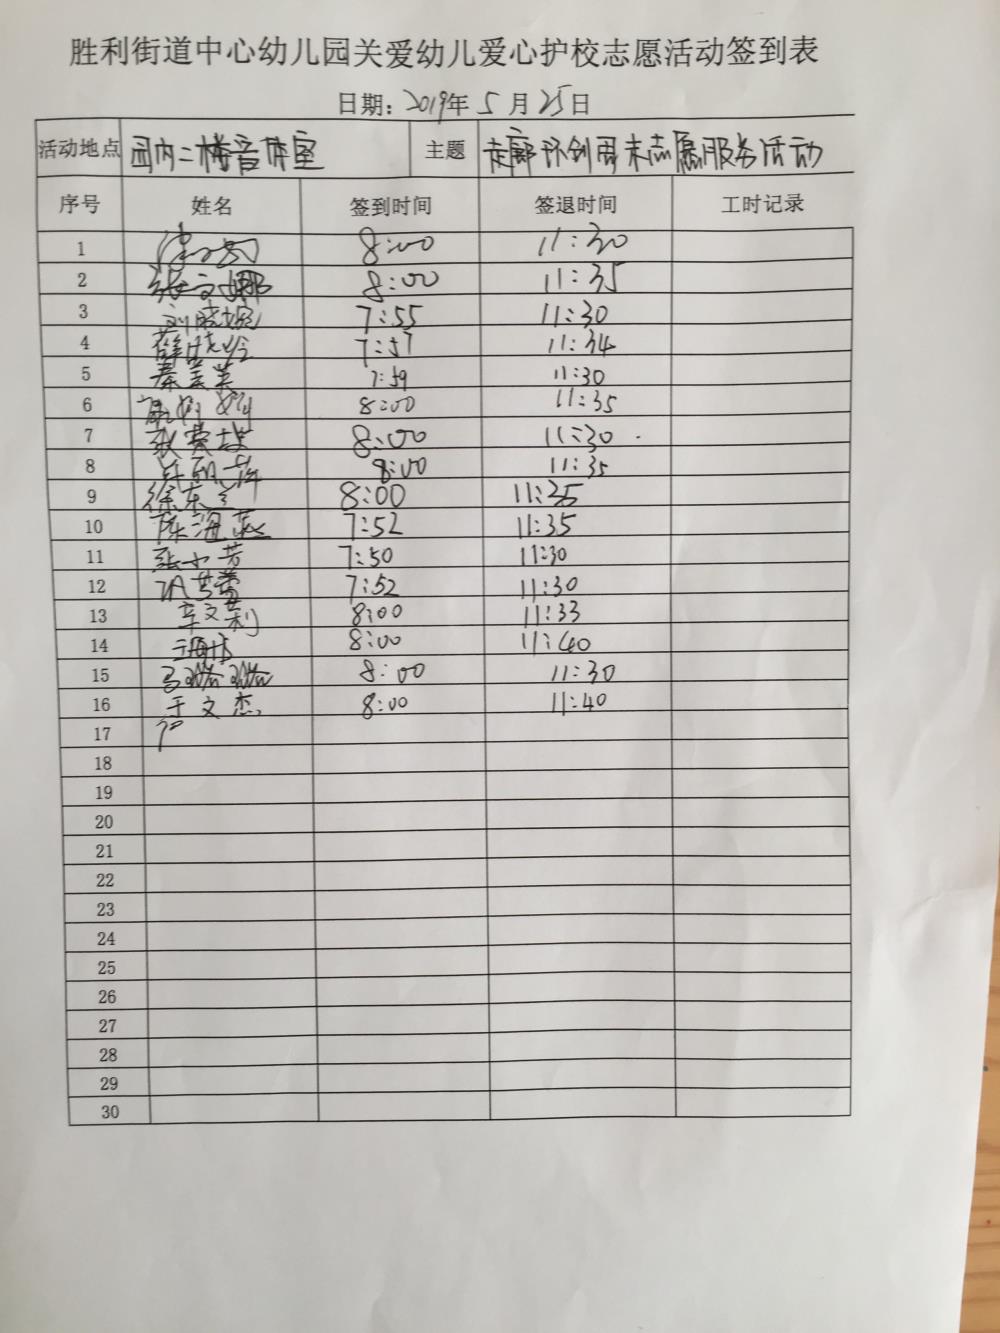 胜利街道中心幼儿园关爱幼儿爱心护校志愿活动签到表
日期: 2019年 5 月 25日
活动地点 园内二楼音体室 主题 走廊环创周末志愿服务活动
序号 姓名 签到时间 签退时间 工时记录
1 8:00 11:30
2 张文娜 8:00 11:35
3 刘晓婉 7:55 11:30
4 薛晓玲 7:57 11:34
5 秦美英 7:59 11:30
6 8:00 11:35
7 8:00 11:30
8 8:00 11:35
9 徐东兰 8:00 11:35
10 陈海燕 7:52 11:35
11 张小芳 7:50 11:30
12 7:52 11:30
13 辛文利 8:00 11:33
14 8:00 11:40
15 8:00 11:30
16 于文杰 8:00 11:40
17
18
19
20
21
22
23
24
25
26
27
28
29
30